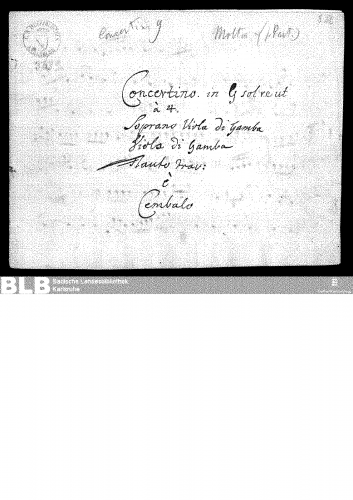 Concertino g Molter (Part.)
Concertino. in G sol re ut
à 4.
Soprano Viola di Gamba
Viola di Gamba
Flauto trav:
è
Cembalo
BLB Badische Landesbibliothek
Karlsruhe